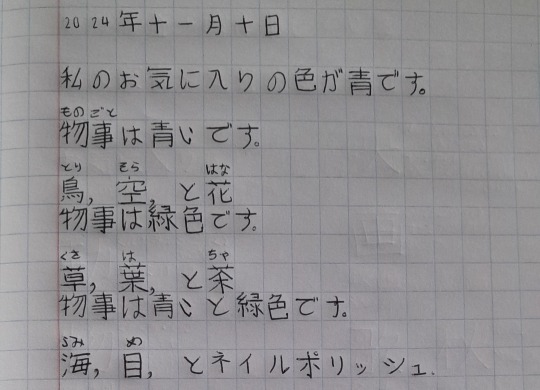 2024年十一月十日
私のお気に入りの色が青です。
ものごと
物事は青いです。
とり そら はな
鳥, 空, と花
物事は緑色です。
くさ は ちゃ
草, 葉, と茶
物事は青いと緑色です。
うみ め
海, 目, とネイルポリッシュ.